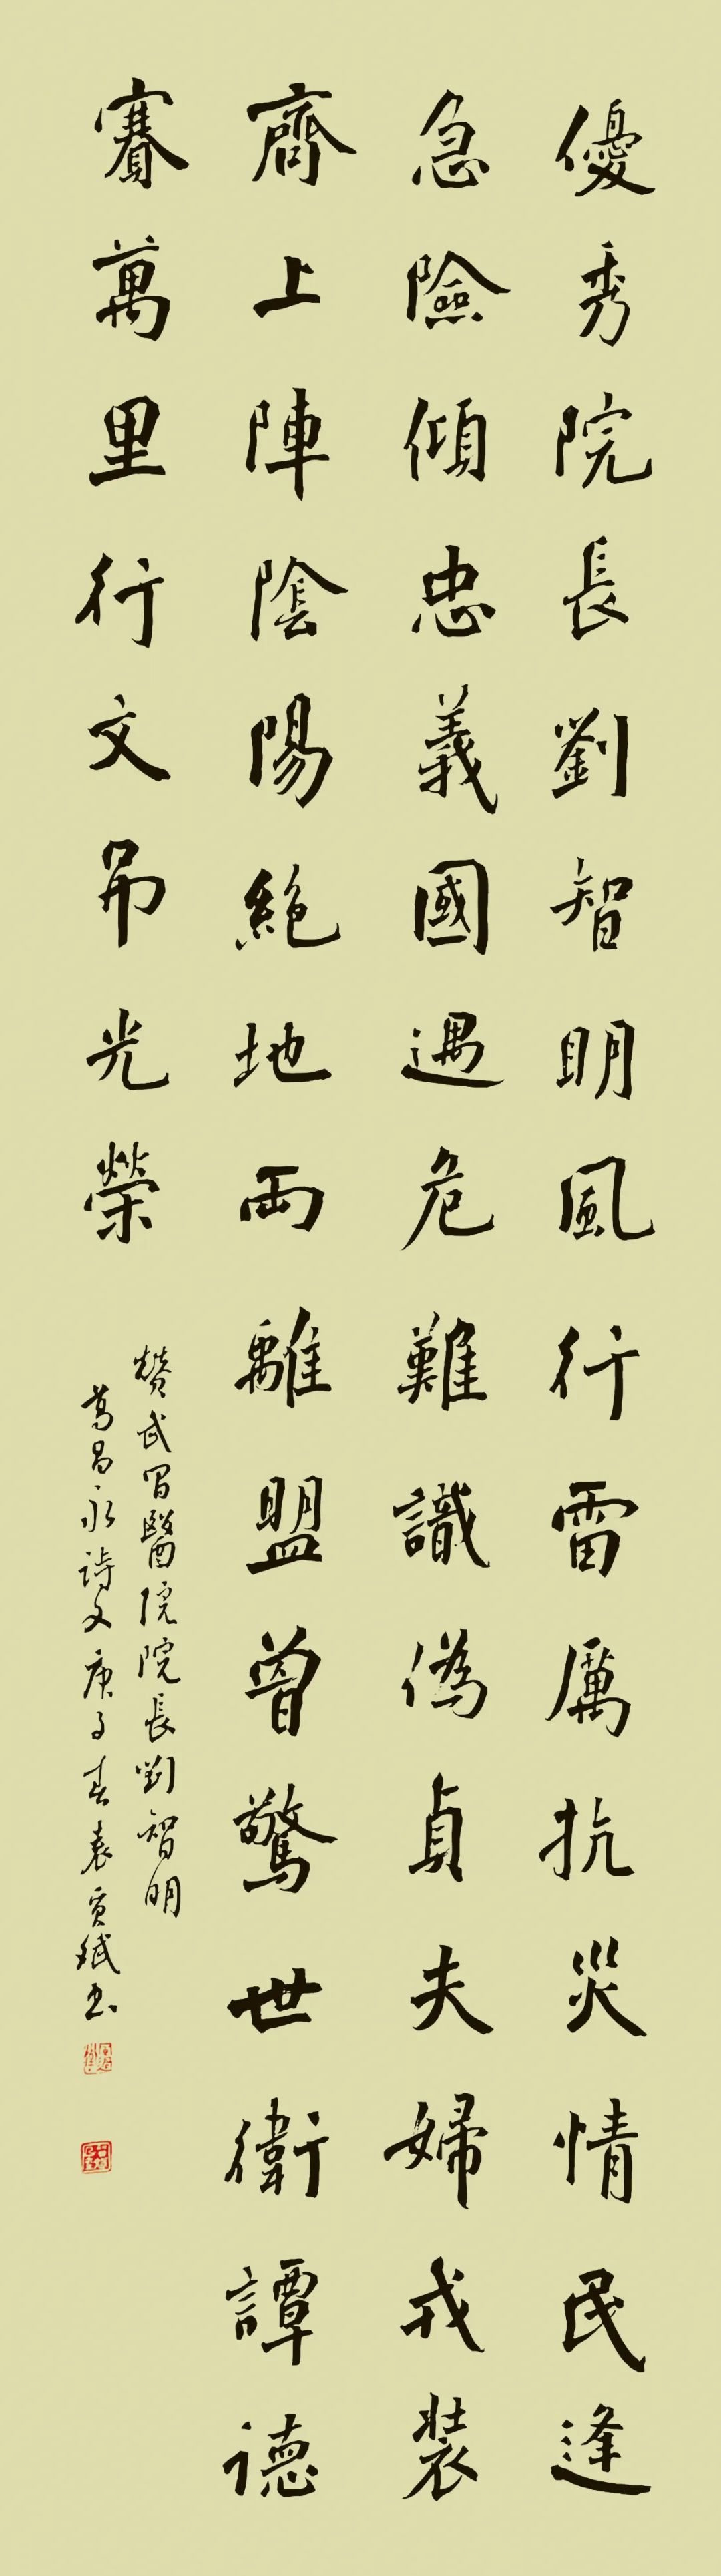 優秀院長劉智明風行雷厲抗災情民逢
急險傾忠義國遇危難識偽貞夫婦戎裝
齊上陣陰陽絶地兩離盟曾驚世衛譚德
賽萬里行文吊光榮
赞武昌醫院院長劉智明
葛昌永詩文庚子春袁貢斌书